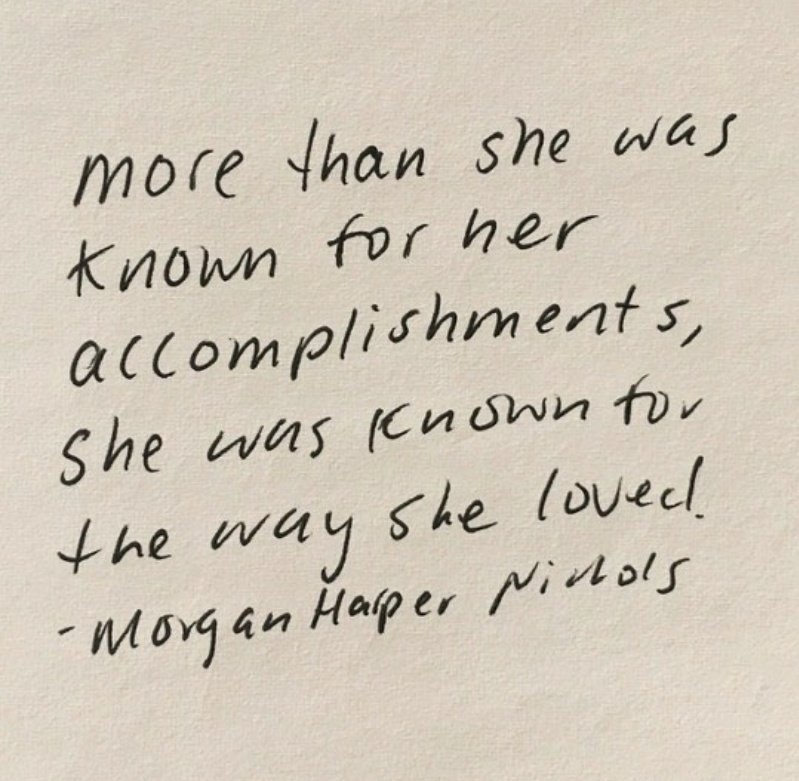 more than she was
known for her
accomplishments,
she was known for
the way she loved.
- Morgan Harper Nichols